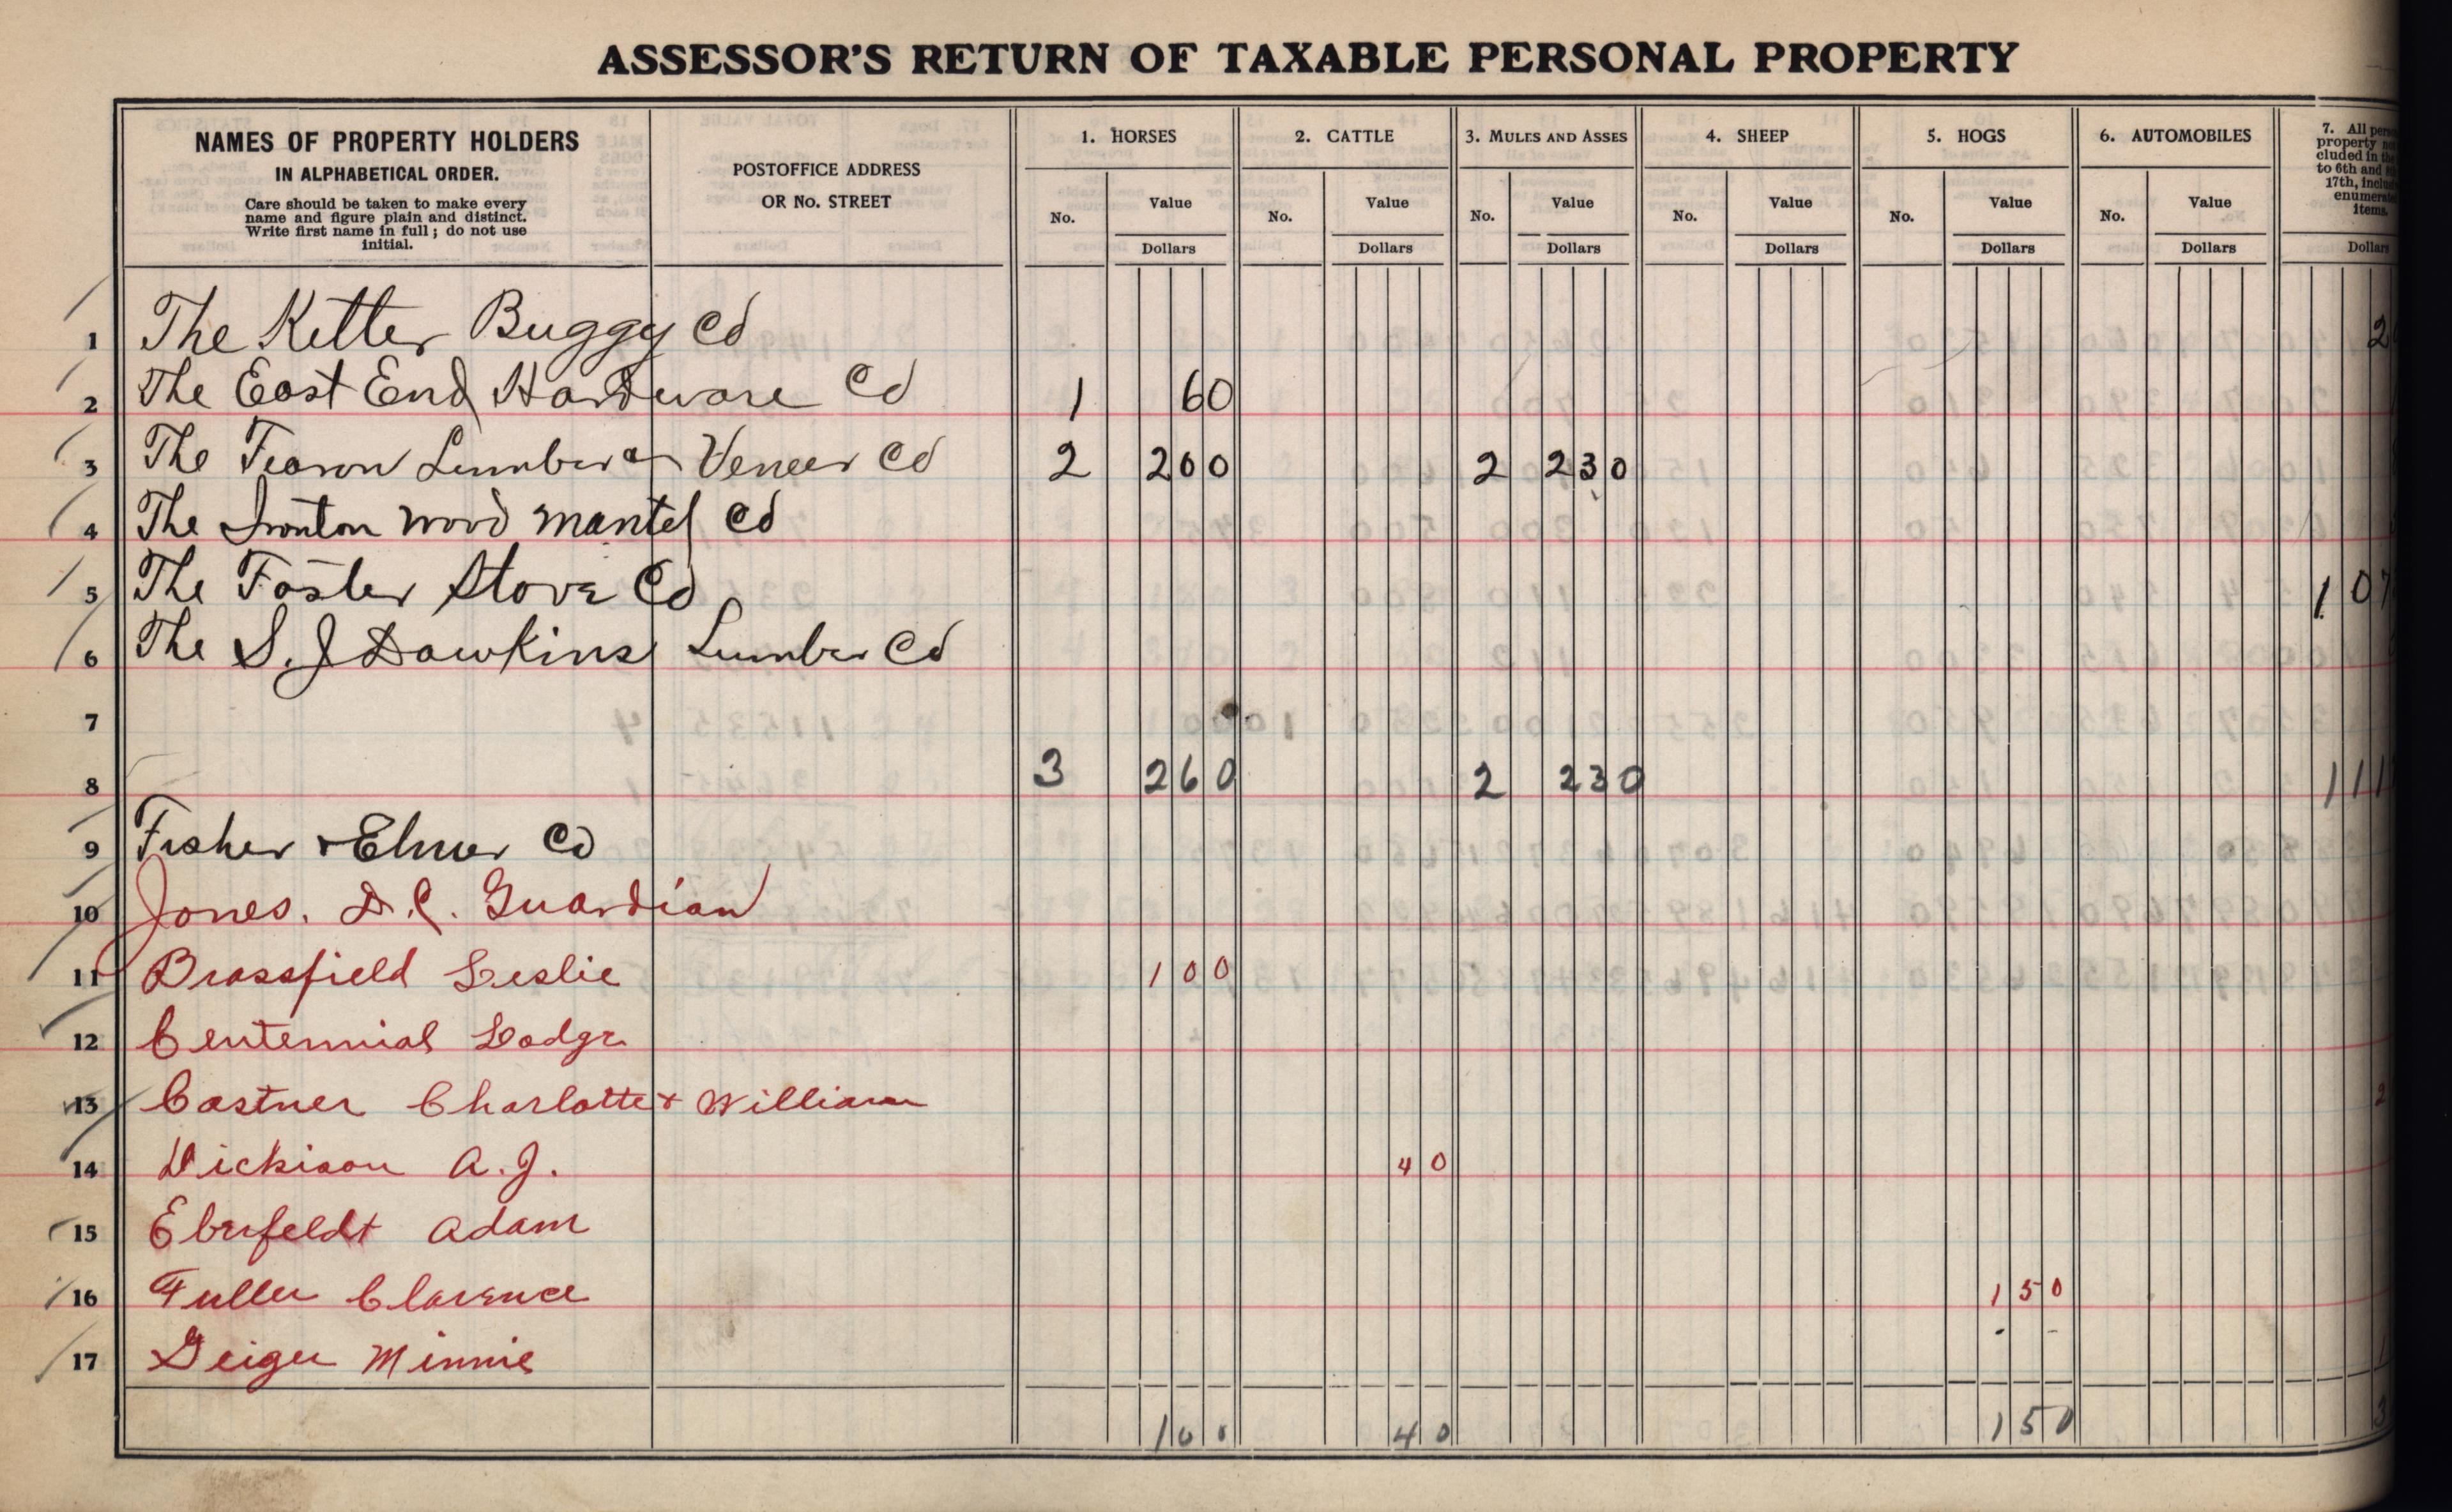 ASSESSOR'S RETURN OF TAXABLE PERSONAL PROPERTY
NAMES OF PROPERTY HOLDERS
IN ALPHABETICAL ORDER.
Care should be taken to make every
name and figure plain and distinct.
Write first name in full; do not use
initial.
POSTOFFICE ADDRESS
OR No. STREET
1. HORSES
No. Value
Dollars
2. CATTLE
No. Value
Dollars
3. MULES AND ASSES
No. Value
Dollars
4. SHEEP
No. Value
Dollars
5. HOGS
No. Value
Dollars
6. AUTOMOBILES
No. Value
Dollars
7. All
property
cluded in
to 6th and
17th,
items.
Dollars
1 The Ketter Buggy Co 2
2 The East End Hardware Co 1 60
3 The Fearon Lumber & Veneer Co 2 200 2 230
4 The Ironton Wood Mantel Co
5 The Foster Stove Co 107
6 The S. J Dawkins Lumber Co
7
8 3 260 2 230 111
9 Fisher & Elmer Co
10 Jones. D. C. Guardian
11 Brassfield Leslie 100
12 Centennial Lodge
13 Castner Charlotte & William 2
14 Dickison A. J. 40
15 Eberfeldt Adam
16 Fuller Clarence 150
17 Geiger Minnie 1
100 40 150 3